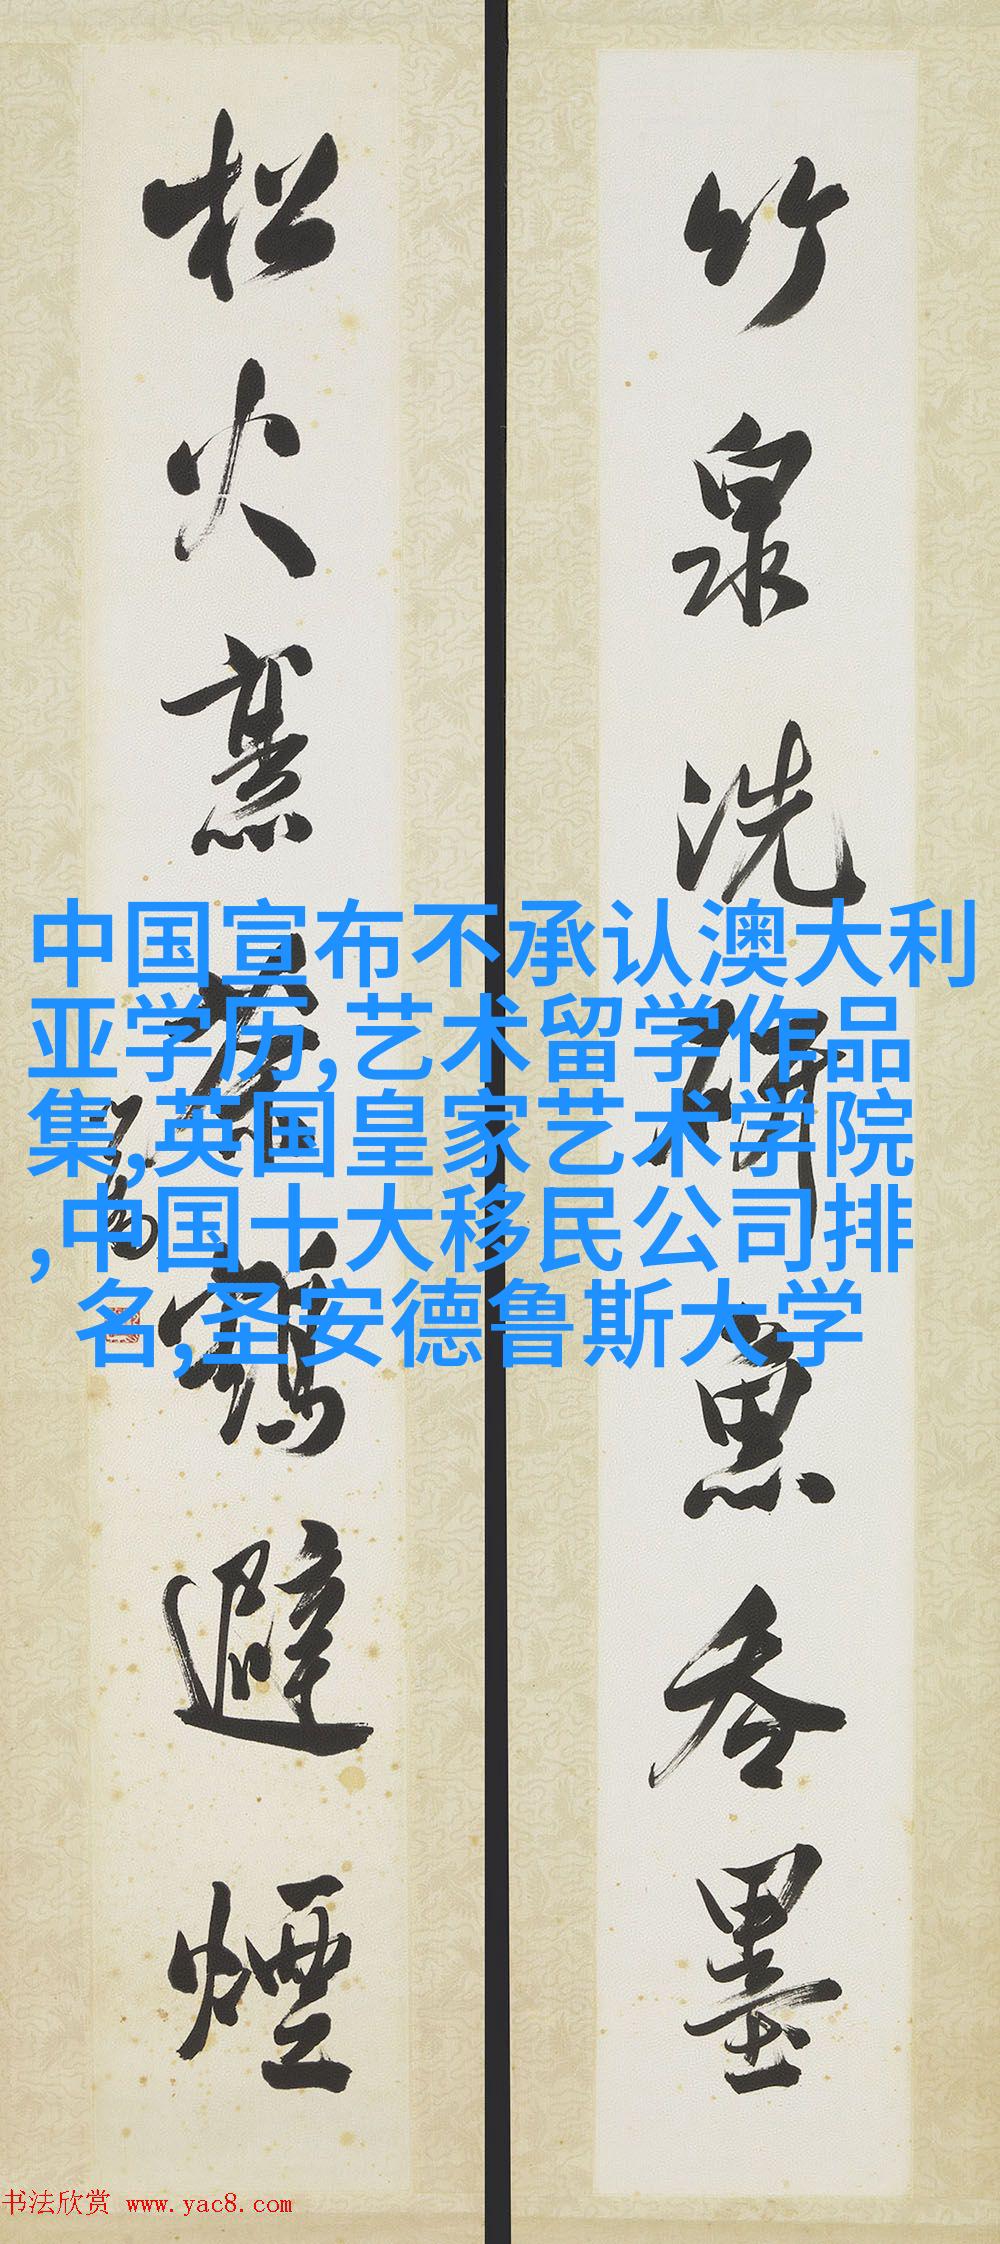 竹泉洗研魚吞墨
松火烹茶鶴避煙
中国宣布不承认澳大利
亚学历,艺术留学作品
集,英国皇家艺术学院
,中国十大移民公司排
名,圣安德鲁斯大学
书法欣赏 www.yac8.com